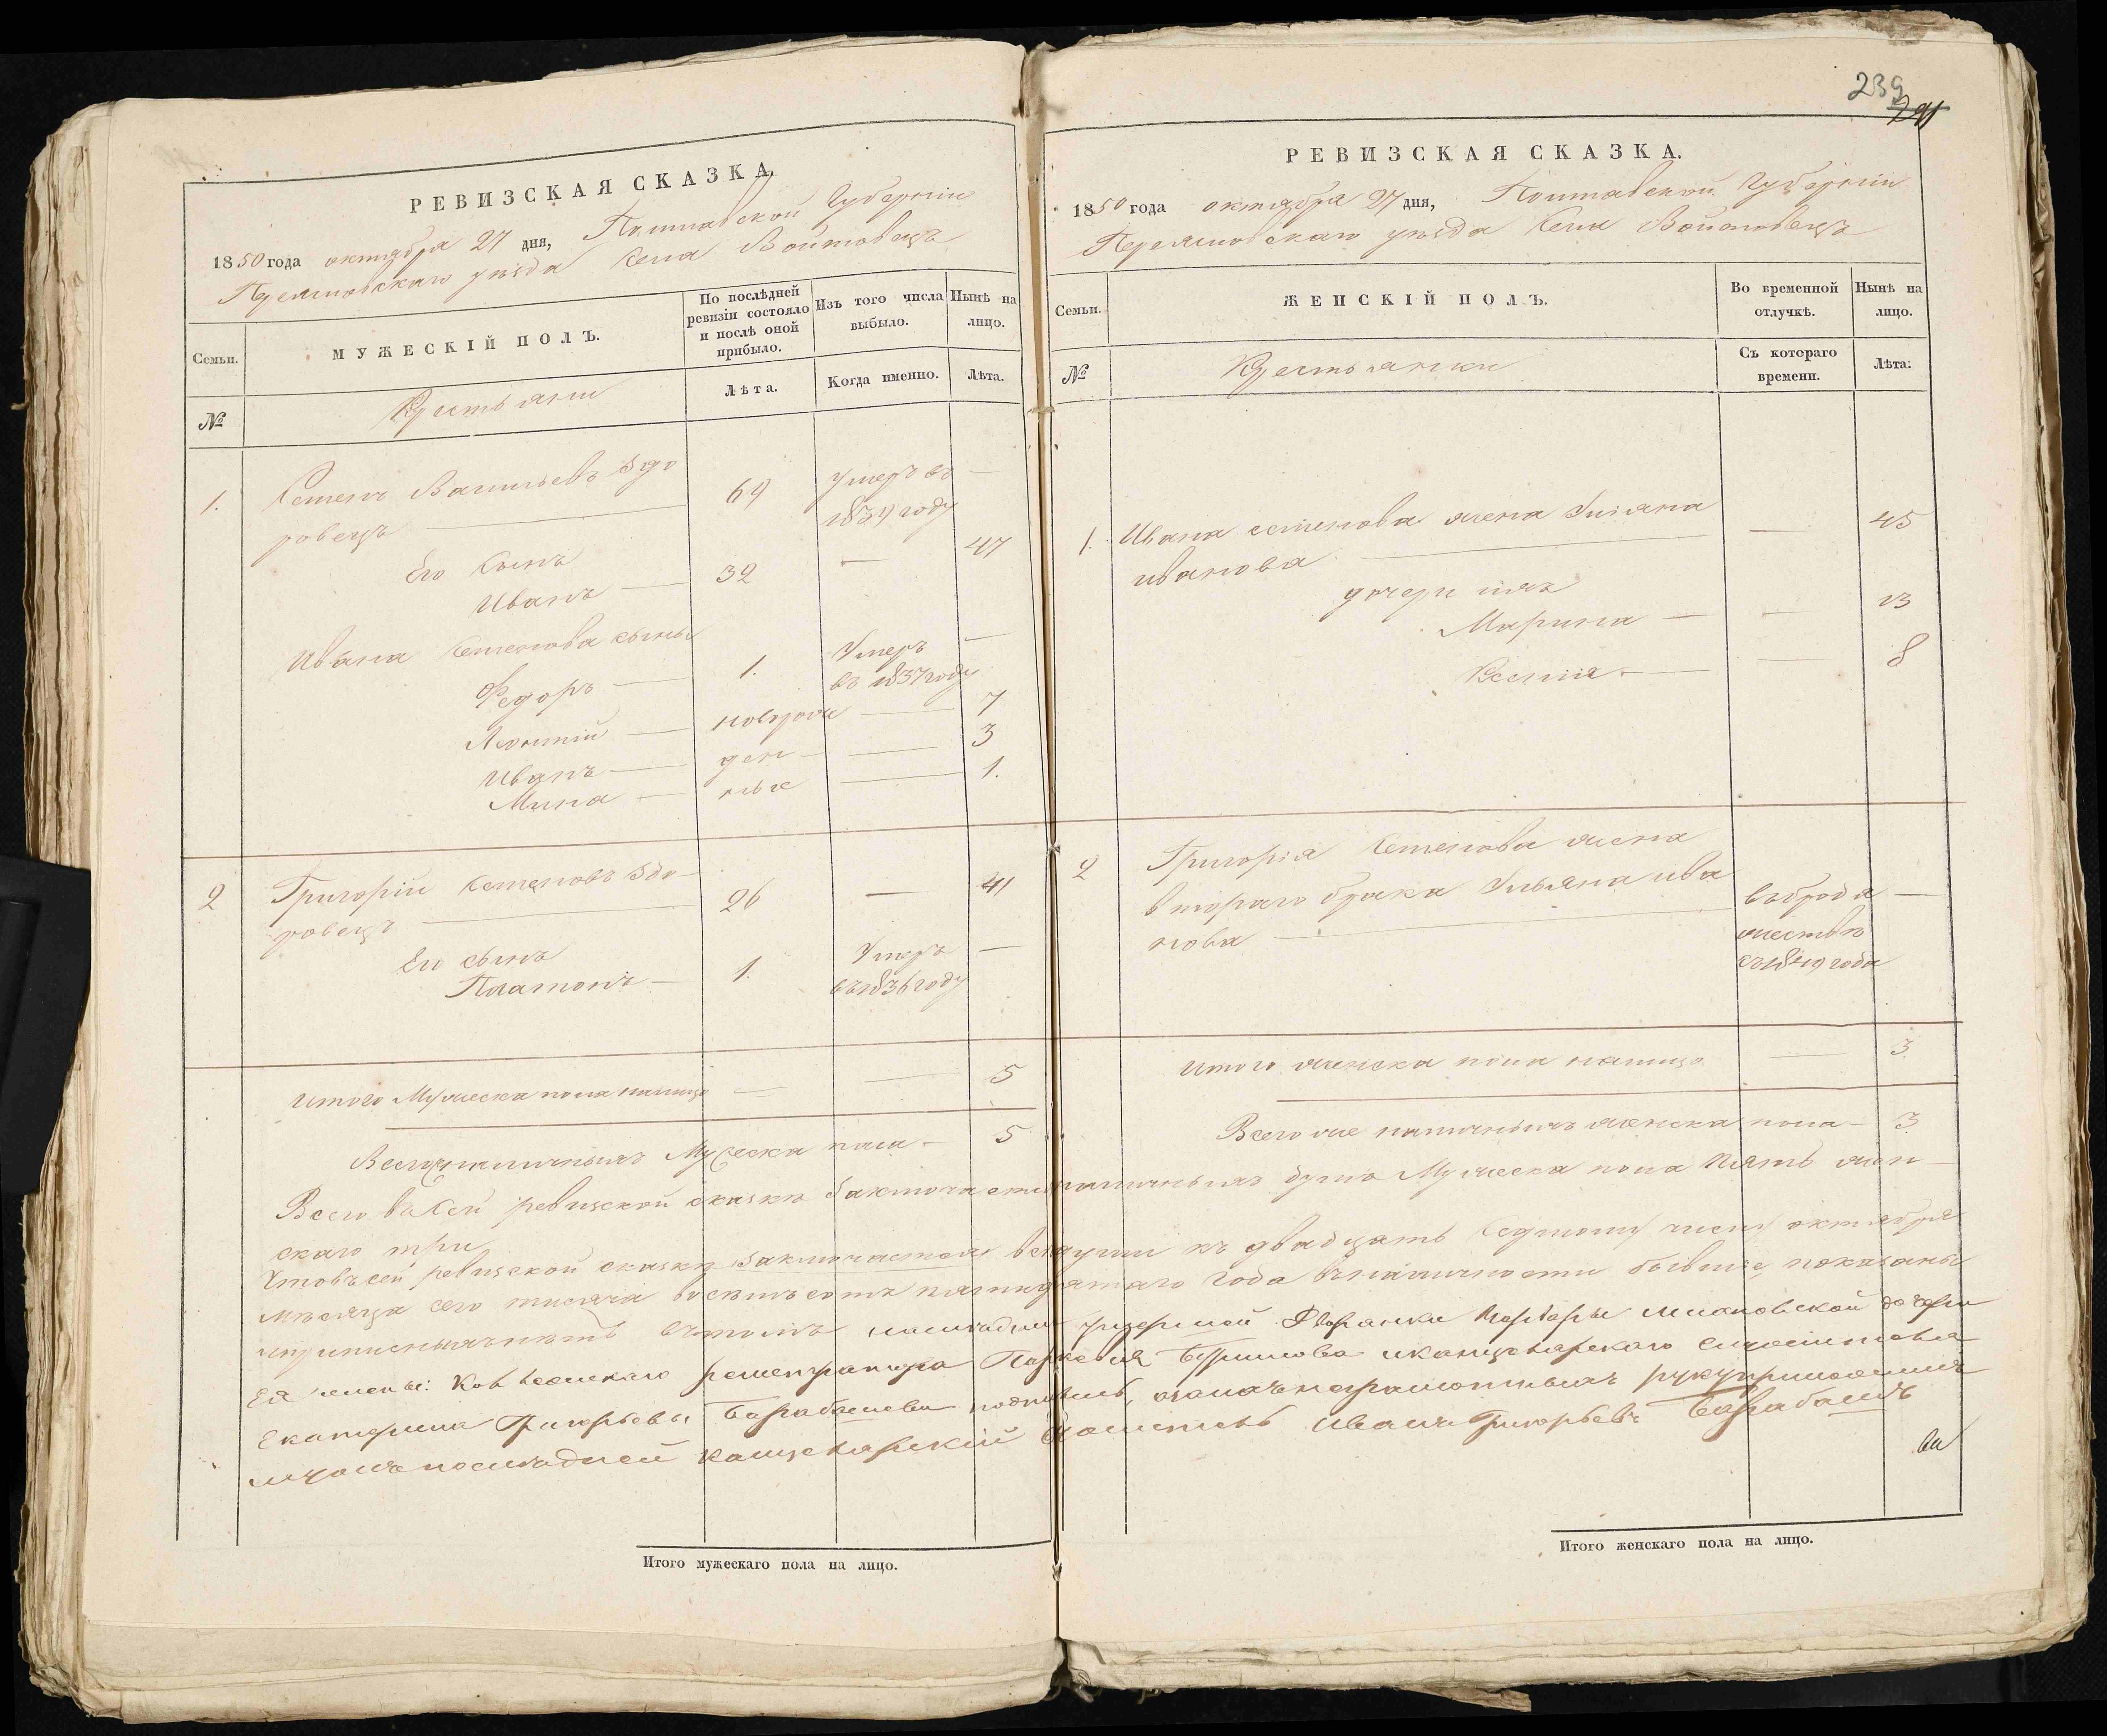 РЕВИЗСКАЯ СКАЗКА.
1850 года октября 27 дня, Полтавской Губерніи
Переяславскаго уѣзда Села Войтовецъ
Семьи.
МУЖЕСКІЙ ПОЛЪ.
По послѣдней ревизіи состояло и послѣ оной прибыло.
Изъ того числа выбыло.
Нынѣ на лицо.
№
Крестьяни
Лѣта.
Когда именно.
Лѣта.
1. Семенъ Васильевъ Здо 69 Умеръ въ —
ровецъ — 1839 году
Его Сынъ
Иванъ — 32 — 47
Ивана Семенова сыны
Федоръ — 1. Умеръ —
въ 1837 году
Леонтій — новорож — 7
Иванъ — ден — — 3
Мина — ные — 1.
2 Григорій Семеновъ Здо- 26 — 41
ровецъ —
Его сынъ
Платонъ — 1. Умеръ —
въ 1836 году
Итого Мужеска пола налицо — — 5
Всего наличныхъ Мужеска пола — 5
239
241
РЕВИЗСКАЯ СКАЗКА.
1850 года октября 27 дня, Полтавской Губерніи
Переяславскаго уѣзда Села Войтовецъ
Семьи.
ЖЕНСКІЙ ПОЛЪ.
Во временной отлучкѣ.
Нынѣ на лицо.
№
Крестьянки
Съ котораго времени.
Лѣта.
1. Ивана семенова жена Ульяна — 45
иванова —
дочери ихъ
Марина — — 13
Ксенія — — 8
2 Григорія Семенова жена
втораго брака Ульяна ива
нова — въ брода —
жествѣ
съ 1849 года
Итого женска пола налицо — 3.
Всего же наличныхъ женска пола — 3
Всего въ Сей ревизской сказкѣ заключается наличныхъ душъ Мужеска пола пять жен-
скаго три
Что въ сей ревизской сказкѣ заключается всѣ души къ двадцать седмому числу октября
мѣсяца сего тысяча восемь сотъ пятидесятаго года въ наличности бывшіе, показаны
Екатерина Григорьева Барабашева
Иванъ Григорьевъ Барабашъ
Итого мужескаго пола на лицо.
Итого женскаго пола на лицо.